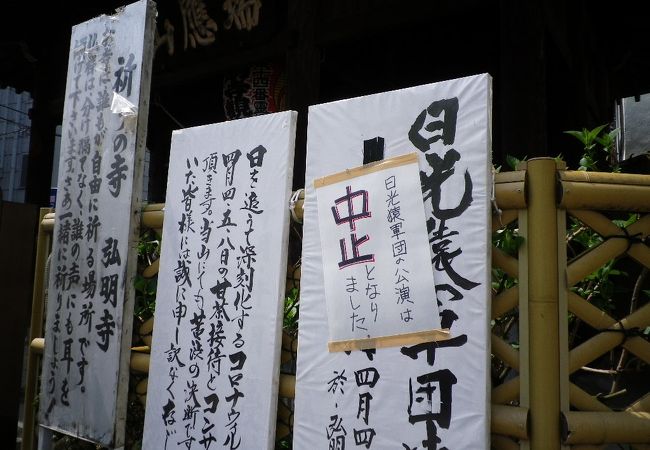 瑞應山
祈りの寺 弘明寺
お寺は誰もが自由に祈る場所です。
仏様は分け隔てなく、誰の声にも耳を
傾けて下さいます。さあ一緒に祈りましょう!
日を追って深刻化するコロナウィル
四月四、五、八日の甘茶接待とコンサ
頂きます。当山にても苦渋の決断です
いた皆様には誠に申し訳なくなど
日光猿軍団
四月四
於・弘明
日光猿軍団の公演は
中止
となり
ました。